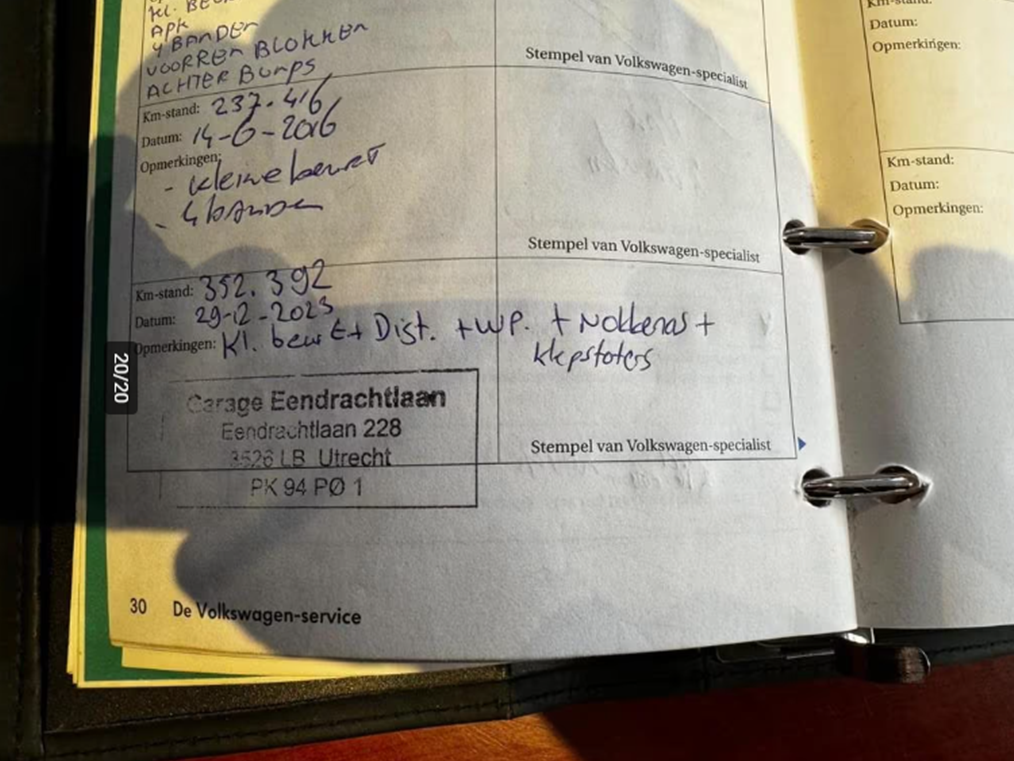 Kl. BEU
APK
4 BANDEN
VOORREM BLOKKEN
ACHTER BUMPS
Stempel van Volkswagen-specialist
Km-stand: 237.416
Datum: 14-6-2016
Opmerkingen:
- Kleine beurt
- 4 banden
Stempel van Volkswagen-specialist
Km-stand: 352.392
Datum: 29-12-2023
Opmerkingen: Kl. beurt + Dist. + WP. + Nokkenas +
klepstoters
Garage Eendrachtlaan
Eendrachtlaan 228
3526 LB Utrecht
PK 94 PØ 1
Stempel van Volkswagen-specialist
30 De Volkswagen-service
Km-stand:
Datum:
Opmerkingen:
Km-stand:
Datum:
Opmerkingen:
20/20